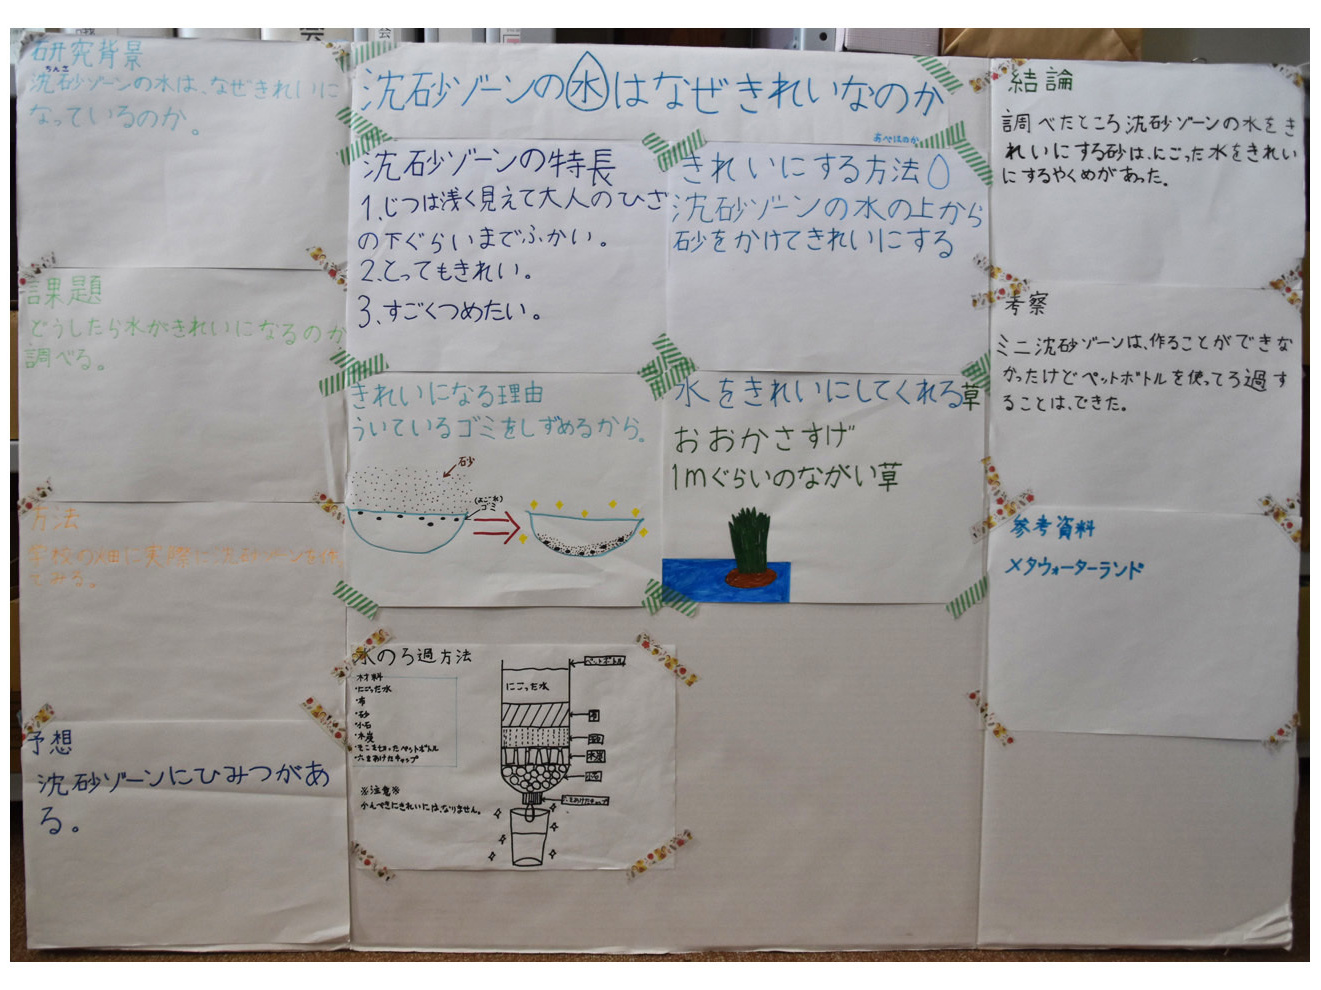 研究背景
ちんさ
沈砂ゾーンの水は、なぜきれいに
なっているのか。
課題
どうしたら水がきれいになるのか
調べる。
方法
学校の畑に実際に沈砂ゾーンを作っ
てみる。
予想
沈砂ゾーンにひみつがあ
る。
沈砂ゾーンの水はなぜきれいなのか
沈砂ゾーンの特長
1、じつは浅く見えて大人のひざ
の下ぐらいまでふかい。
2、とってもきれい。
3、すごくつめたい。
きれいにする方法
沈砂ゾーンの水の上から
砂をかけてきれいにする
きれいになる理由
ういているゴミをしずめるから。
砂
(よごれ)
ゴミ
水をきれいにしてくれる草
おおかさすげ
1mぐらいのながい草
水のろ過方法
材料
・にごった水
・布
・砂
・小石
・木炭
・そこを切ったペットボトル
・穴をあけたキャップ
※注意※
かんぺきにきれいには、なりません。
ペットボトル
にごった水
布
木炭
小石
穴をあけたキャップ
結論
調べたところ沈砂ゾーンの水をき
れいにする砂は、にごった水をきれい
にするやくめがあった。
考察
ミニ沈砂ゾーンは、作ることができな
かったけどペットボトルを使ってろ過す
ることは、できた。
参考資料
メタウォーターランド